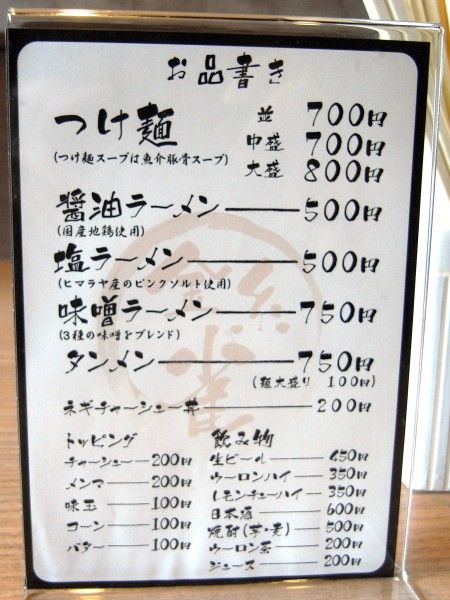 お品書き
つけ麺 並 700円
中盛 700円
(つけ麺スープは魚介豚骨スープ) 大盛 800円
醤油ラーメン 500円
(国産地鶏使用)
塩ラーメン 500円
(ヒマラヤ産のピンクソルト使用)
味噌ラーメン 750円
(3種の味噌をブレンド)
タンメン 750円
(麺大盛り 100円)
ネギチャーシュー丼 200円
トッピング
チャーシュー 200円
メンマ 200円
味玉 100円
コーン 100円
バター 100円
飲み物
生ビール 450円
ウーロンハイ 350円
レモンチューハイ 350円
日本酒 600円
焼酎(芋・麦) 500円
ウーロン茶 200円
ジュース 200円